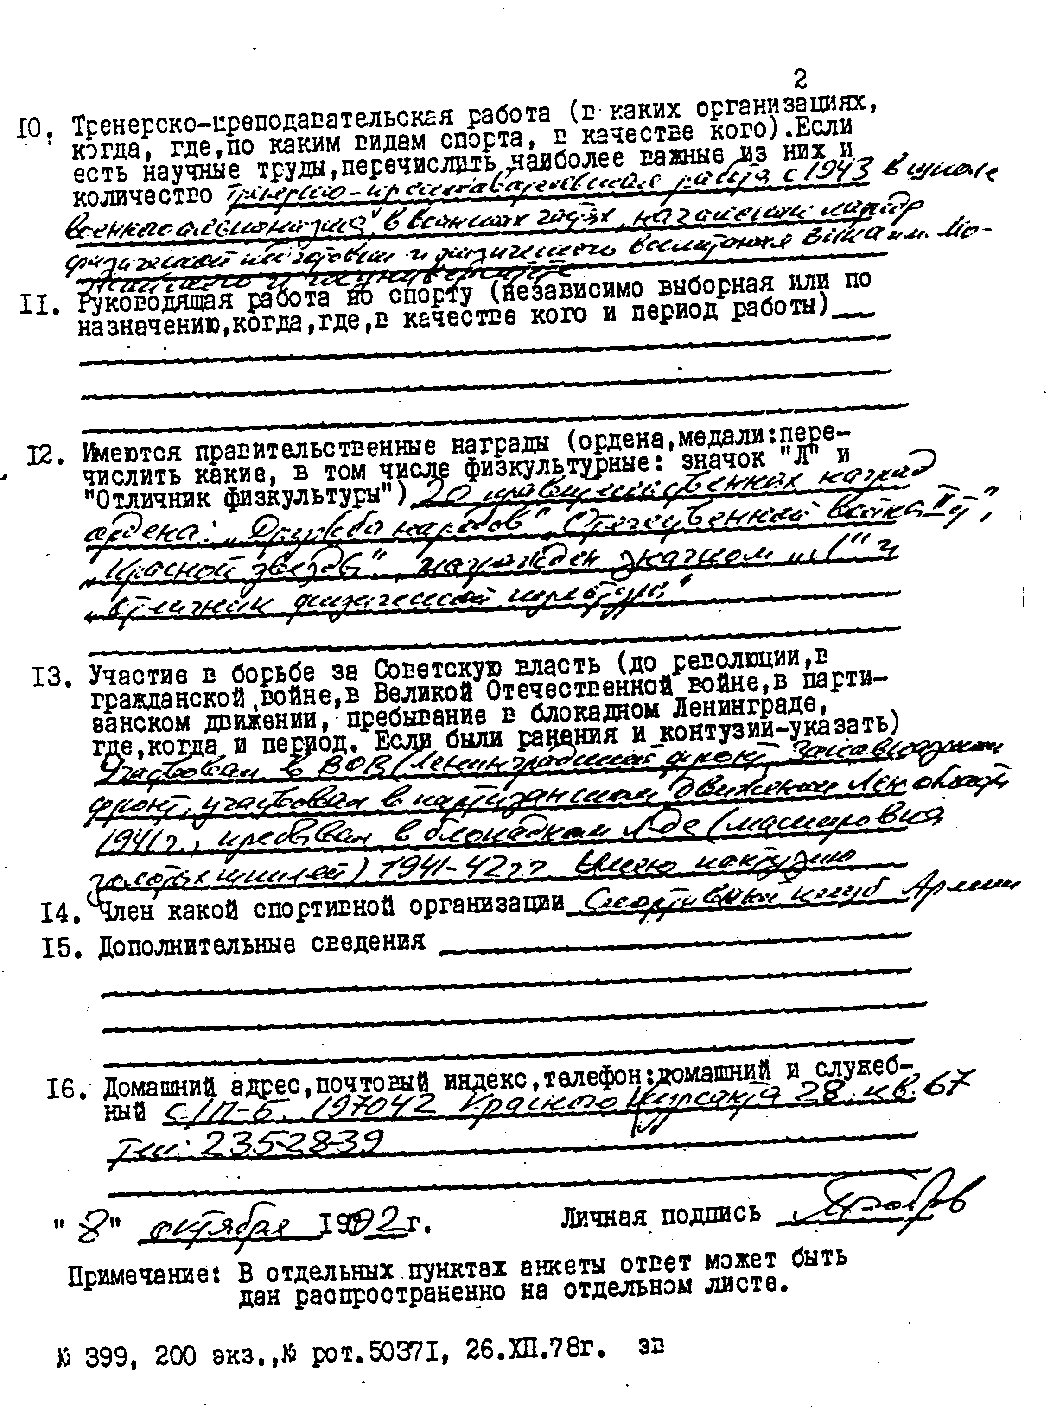 2
10. Тренерско-преподавательская работа (в каких организациях,
когда, где, по каким видам спорта, в качестве кого). Если
есть научные труды, перечислить наиболее важные из них и
количество тренерско-преподавательская работа с 1943 в школе
военного в военных
физической подготовки и физического воспитания ВИКА им. Мо-
жайского и
11. Рукогодящая работа по спорту (независимо выборная или по
назначению, когда, где, в качестве кого и период работы)
12. Имеются правительственные награды (ордена, медали: пере-
числить какие, в том числе физкультурные: значок "Л" и
"Отличник физкультуры") 20 правительственных наград
ордена: „Дружба народов", „Отечественной войны II",
„Красной звезды", награжден значком „Л" и
„отличник физической культуры"
13. Участие в борьбе за Советскую власть (до революции, в
гражданской войне, в Великой Отечественной войне, в парти-
занском движении, пребывание в блокадном Ленинграде,
где, когда и период. Если были ранения и контузии-указать)
Участвовал в ВОВ (Ленинградский фронт,
фронт, участвовал в партизанском движении Лен области
1941г., пребывал в блокадном Л-де (маскировка
) 1941-42гг Имею контузию
14. Член какой спортивной организации Спортивный клуб Армии
15. Дополнительные сведения
16. Домашний адрес, почтовый индекс, телефон: домашний и служеб-
ный С/П-б. 197042 Красного Курсанта 28 кв. 67
Тел: 2352839
"8" октября 1992г. Личная подпись
Примечание: В отдельных пунктах анкеты ответ может быть
дан распространенно на отдельном листе.
№ 399, 200 экз., № рот. 50371, 26.XII.78г. зв